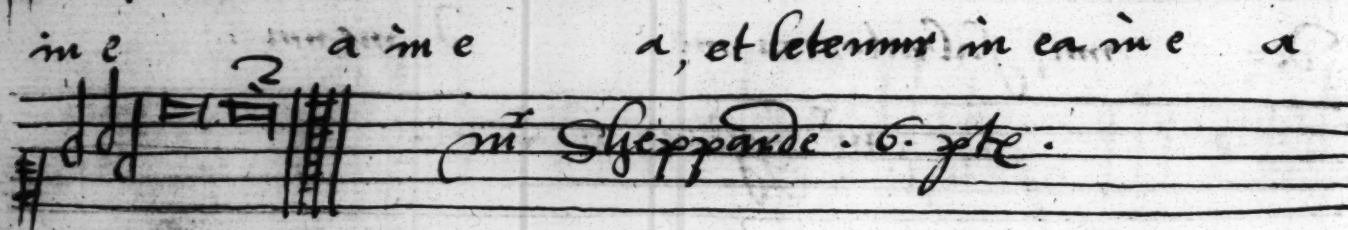 in e a in e a, et letemur in ea in e a
mr Shepparde . 6. pte .